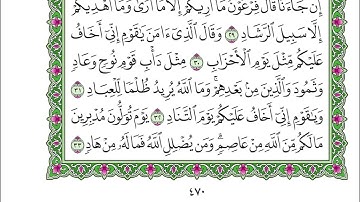 إِن جَآءَنَا قَالَ فِرْعَوْنُ مَآ أُرِيكُمْ إِلَّا مَآ أَرَىٰ وَمَآ أَهْدِيكُمْ
إِلَّا سَبِيلَ ٱلرَّشَادِ ٢٩ وَقَالَ ٱلَّذِىٓ ءَامَنَ يَٰقَوْمِ إِنِّىٓ أَخَافُ
عَلَيْكُم مِّثْلَ يَوْمِ ٱلْأَحْزَابِ ٣٠ مِثْلَ دَأْبِ قَوْمِ نُوحٍ وَعَادٍ
وَثَمُودَ وَٱلَّذِينَ مِنۢ بَعْدِهِمْ ۚ وَمَا ٱللَّهُ يُرِيدُ ظُلْمًا لِّلْعِبَادِ ٣١
وَيَٰقَوْمِ إِنِّىٓ أَخَافُ عَلَيْكُمْ يَوْمَ ٱلتَّنَادِ ٣٢ يَوْمَ تُوَلُّونَ مُدْبِرِينَ
مَا لَكُم مِّنَ ٱللَّهِ مِنْ عَاصِمٍ ۗ وَمَن يُضْلِلِ ٱللَّهُ فَمَا لَهُۥ مِنْ هَادٍ ٣٣
٤٧٠